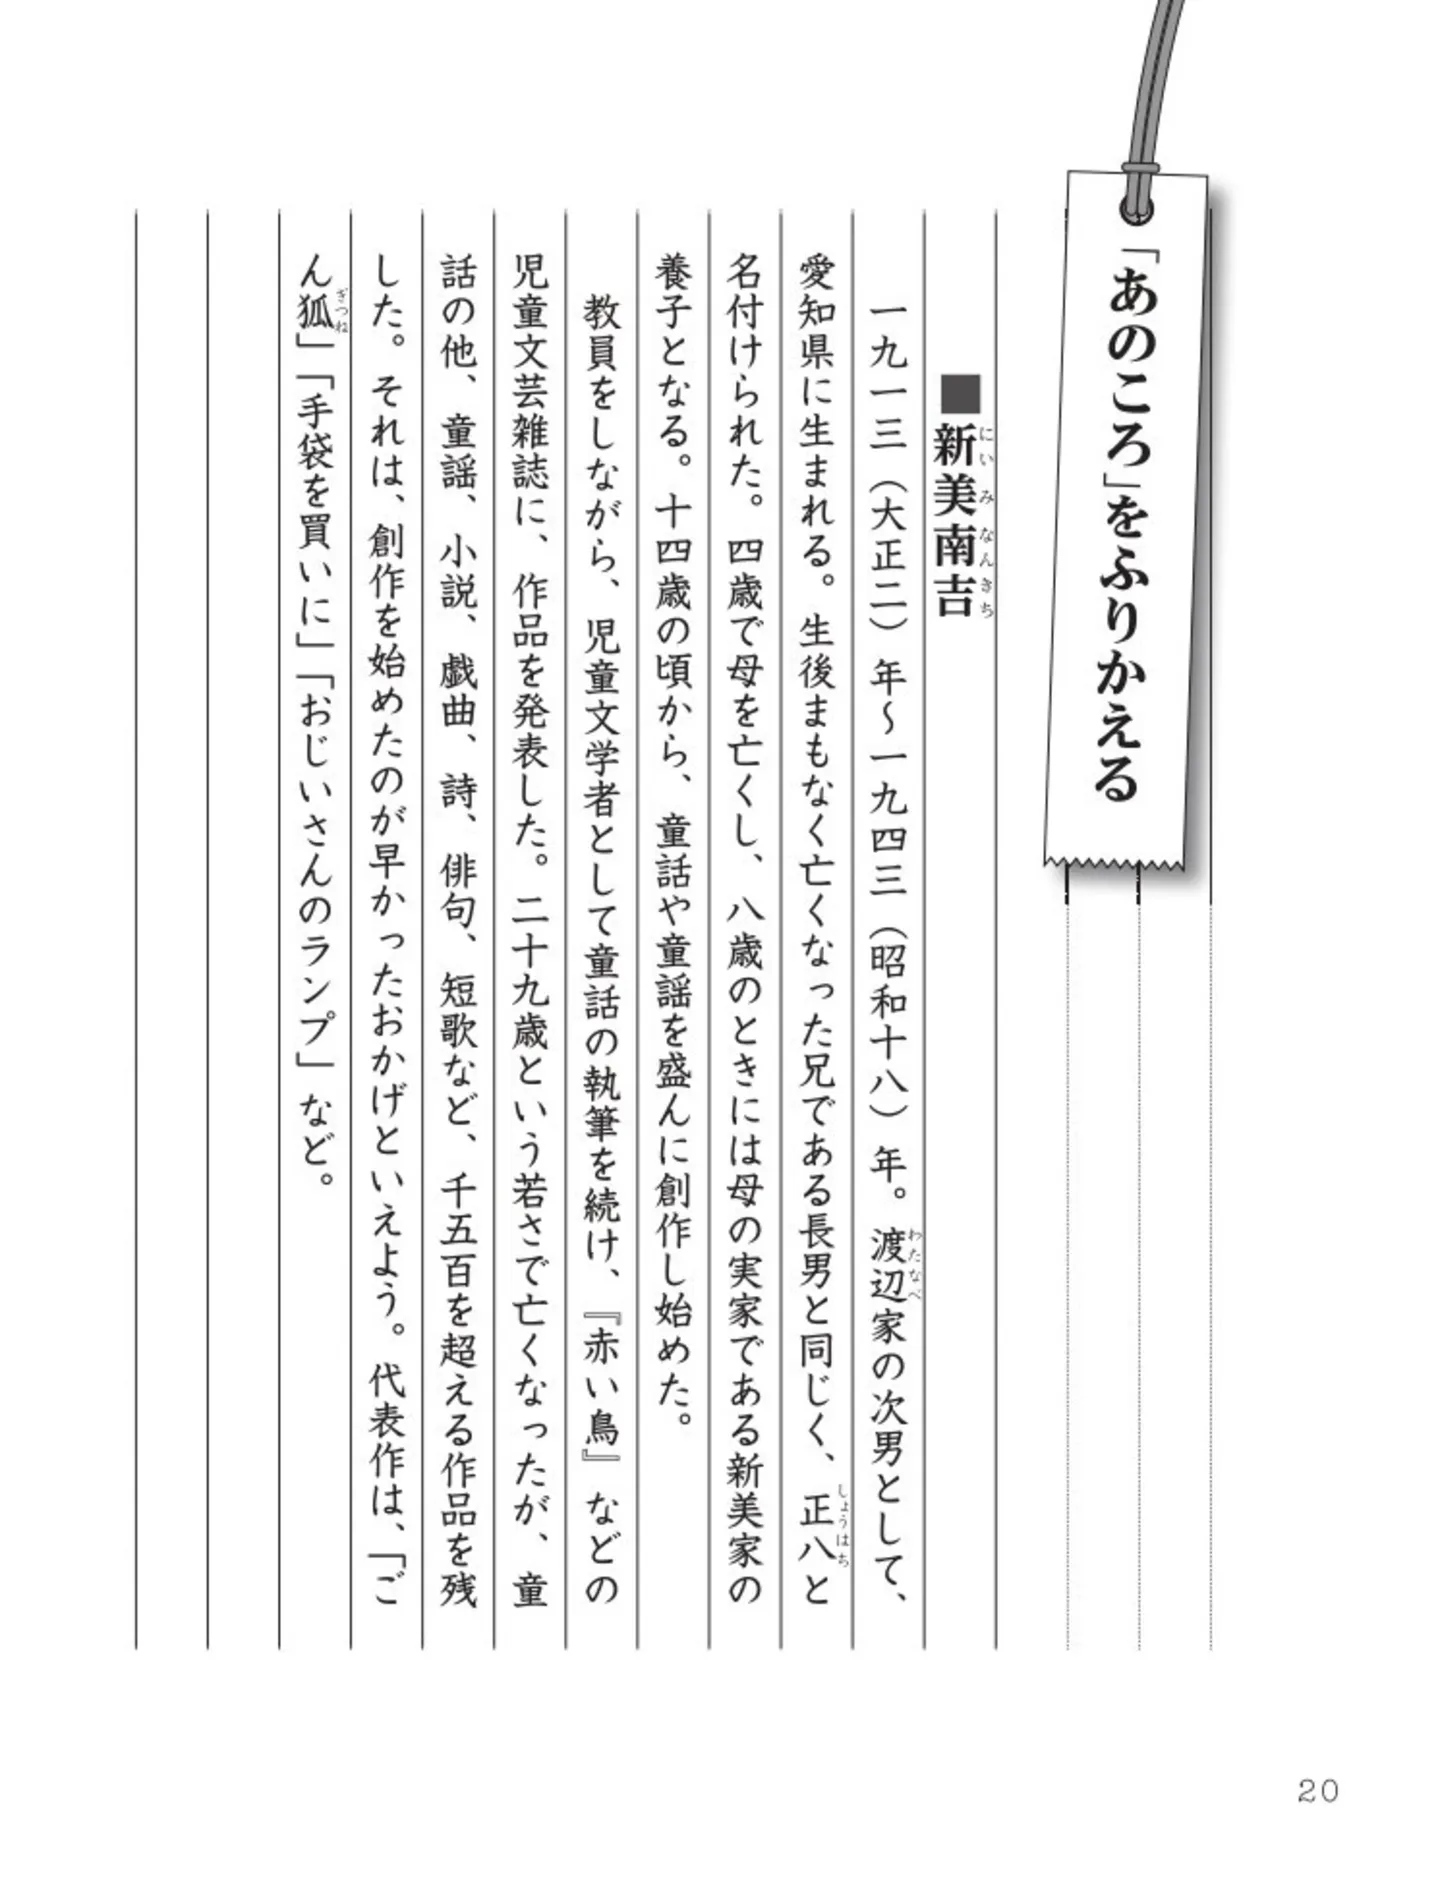 「あのころ」をふりかえる
■新美南吉
にいみなんきち
一九一三（大正二）年〜一九四三（昭和十八）年。渡辺家の次男として、
わたなべ
愛知県に生まれる。生後まもなく亡くなった兄である長男と同じく、正八と
しょうはち
名付けられた。四歳で母を亡くし、八歳のときには母の実家である新美家の
養子となる。十四歳の頃から、童話や童謡を盛んに創作し始めた。
教員をしながら、児童文学者として童話の執筆を続け、『赤い鳥』などの
児童文芸雑誌に、作品を発表した。二十九歳という若さで亡くなったが、童
話の他、童謡、小説、戯曲、詩、俳句、短歌など、千五百を超える作品を残
した。それは、創作を始めたのが早かったおかげといえよう。代表作は、「ご
ん狐」「手袋を買いに」「おじいさんのランプ」など。
ぎつね
20